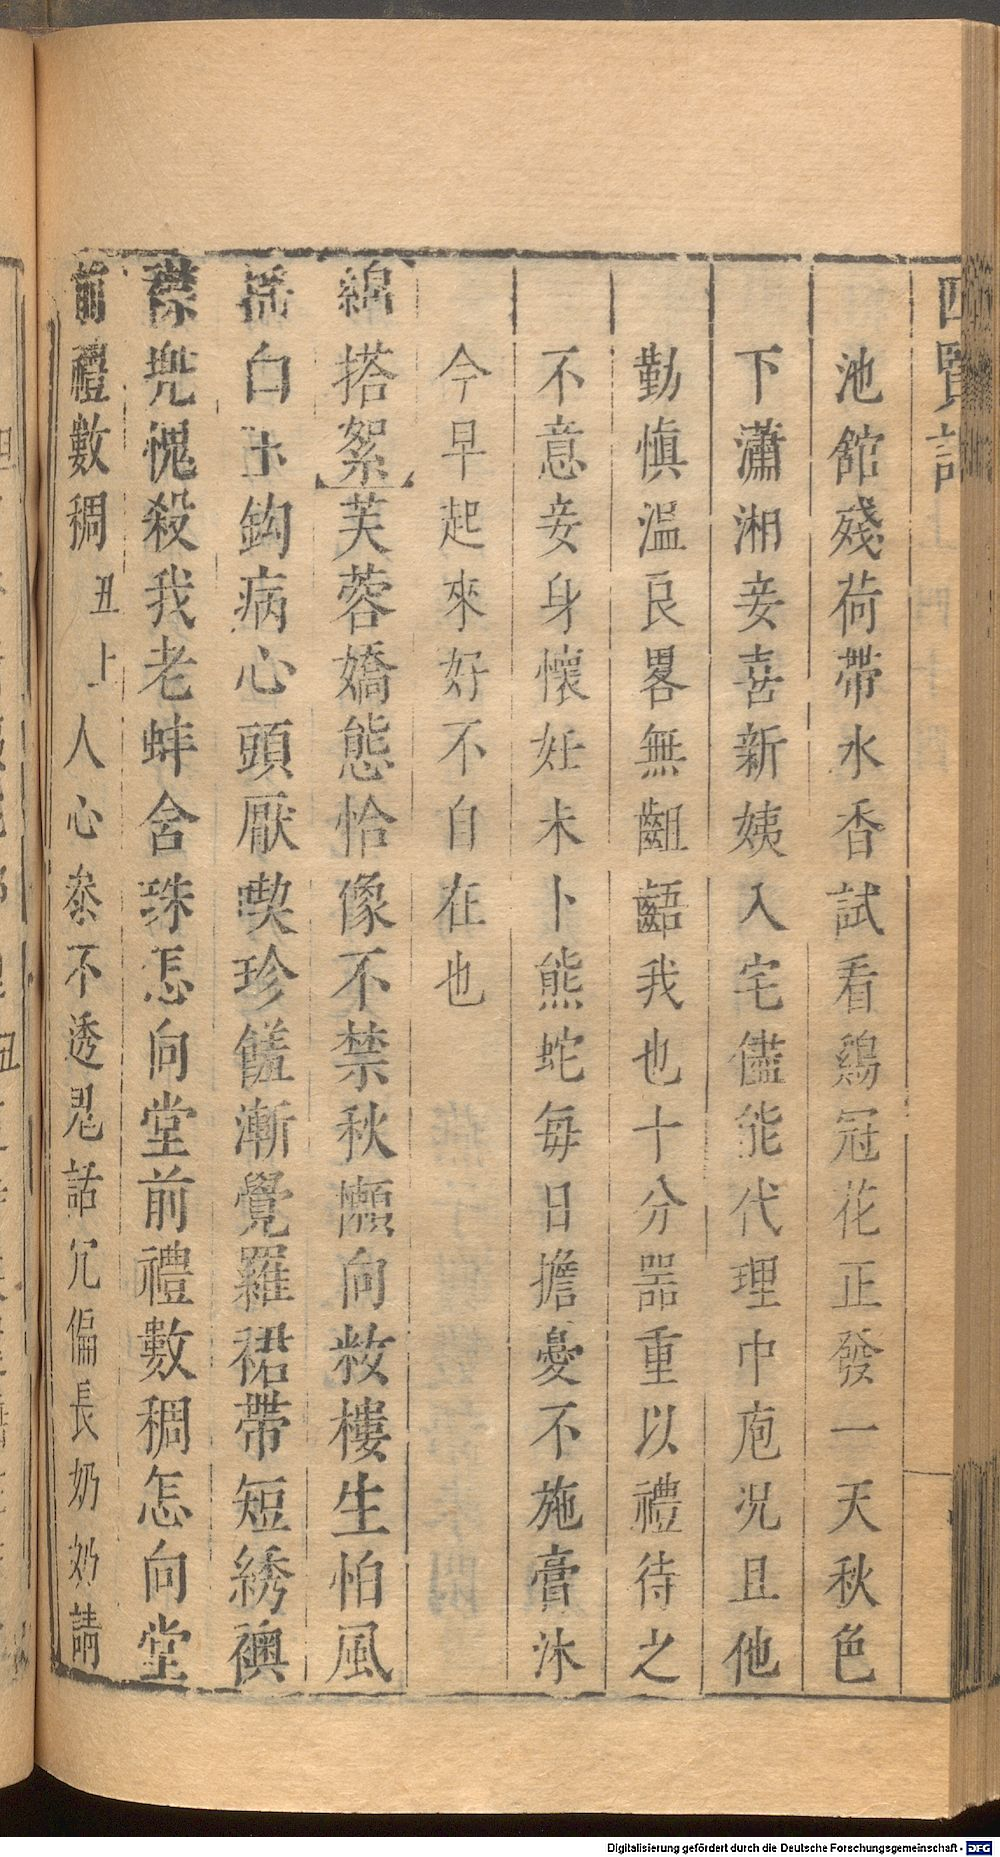 池館殘荷帶水香試看鷄冠花正發一天秋色
下瀟湘妾喜新姨入宅儘能代理中庖况且他
勤慎溫良畧無齟齬我也十分噐重以禮待之
不意妾身懷妊未卜熊蛇每日擔憂不施膏沐
今早起來好不自在也
綿搭絮芙蓉嬌態恰像不禁秋懶向粧樓生怕風
搖白玉鈎病心頭厭喫珍饈漸覺羅裙帶短綉襖
襟兜愧殺我老蚌含珠怎向堂前禮數稠怎向堂
前禮數稠丑上人心叅不透鬼話冗偏長奶奶請
Digitalisierung gefördert durch die Deutsche Forschungsgemeinschaft - DFG